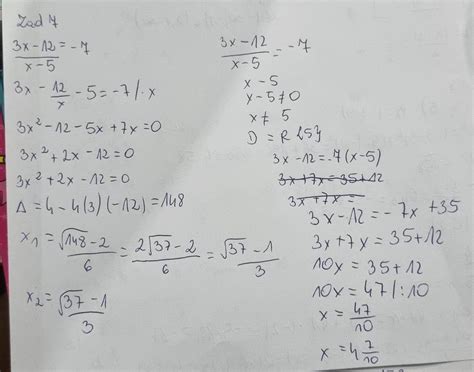 Zad 4
3x-12/x-5 = -7
3x - 12/x - 5 = -7 /· x
3x² - 12 - 5x + 7x = 0
3x² + 2x - 12 = 0
3x² + 2x - 12 = 0
Δ = 4 - 4(3)(-12) = 148
x₁ = √148 - 2/6 = 2√37 - 2/6 = √37 - 1/3
x₂ = √37 - 1/3
3x-12/x-5 = -7
x - 5
x - 5 ≠ 0
x ≠ 5
D = R \ {5}
3x - 12 = -7(x-5)
3x + 7x = 35 + 12
3x + 7x =
3x - 12 = -7x + 35
3x + 7x = 35 + 12
10x = 35 + 12
10x = 47 /: 10
x = 47/10
x = 4 7/10